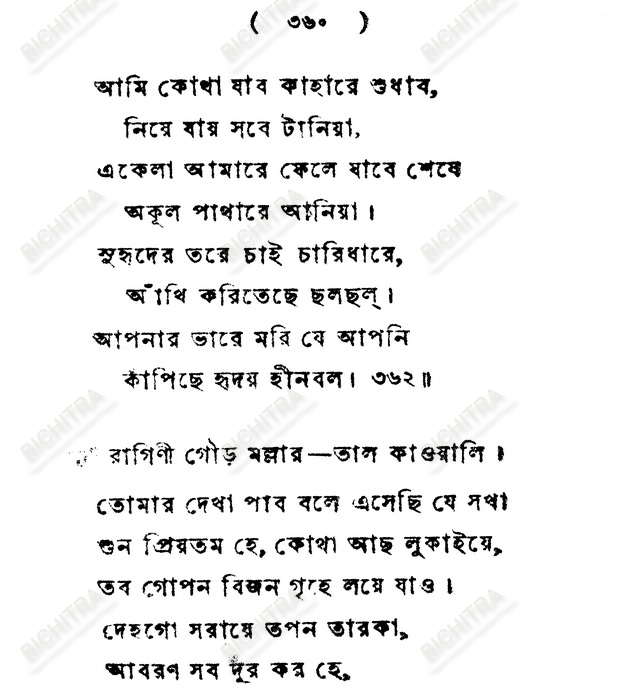 ( ৩৬০ )
আমি কোথা যাব কাহারে শুধাব,
নিয়ে যায় সবে টানিয়া,
একেলা আমারে ফেলে যাবে শেষে
অকূল পাথারে আনিয়া।
সুহৃদের তরে চাই চারিধারে,
আঁখি করিতেছে ছলছল্।
আপনার ভারে মরি যে আপনি
কাঁপিছে হৃদয় হীনবল। ৩৬২॥
রাগিণী গৌড় মল্লার—তাল কাওয়ালি।
তোমার দেখা পাব বলে এসেছি যে সখা
শুন প্রিয়তম হে, কোথা আছ লুকাইয়ে,
তব গোপন বিজন গৃহে লয়ে যাও।
দেহগো সরায়ে তপন তারকা,
আবরণ সব দূর কর হে,
BICHITRA